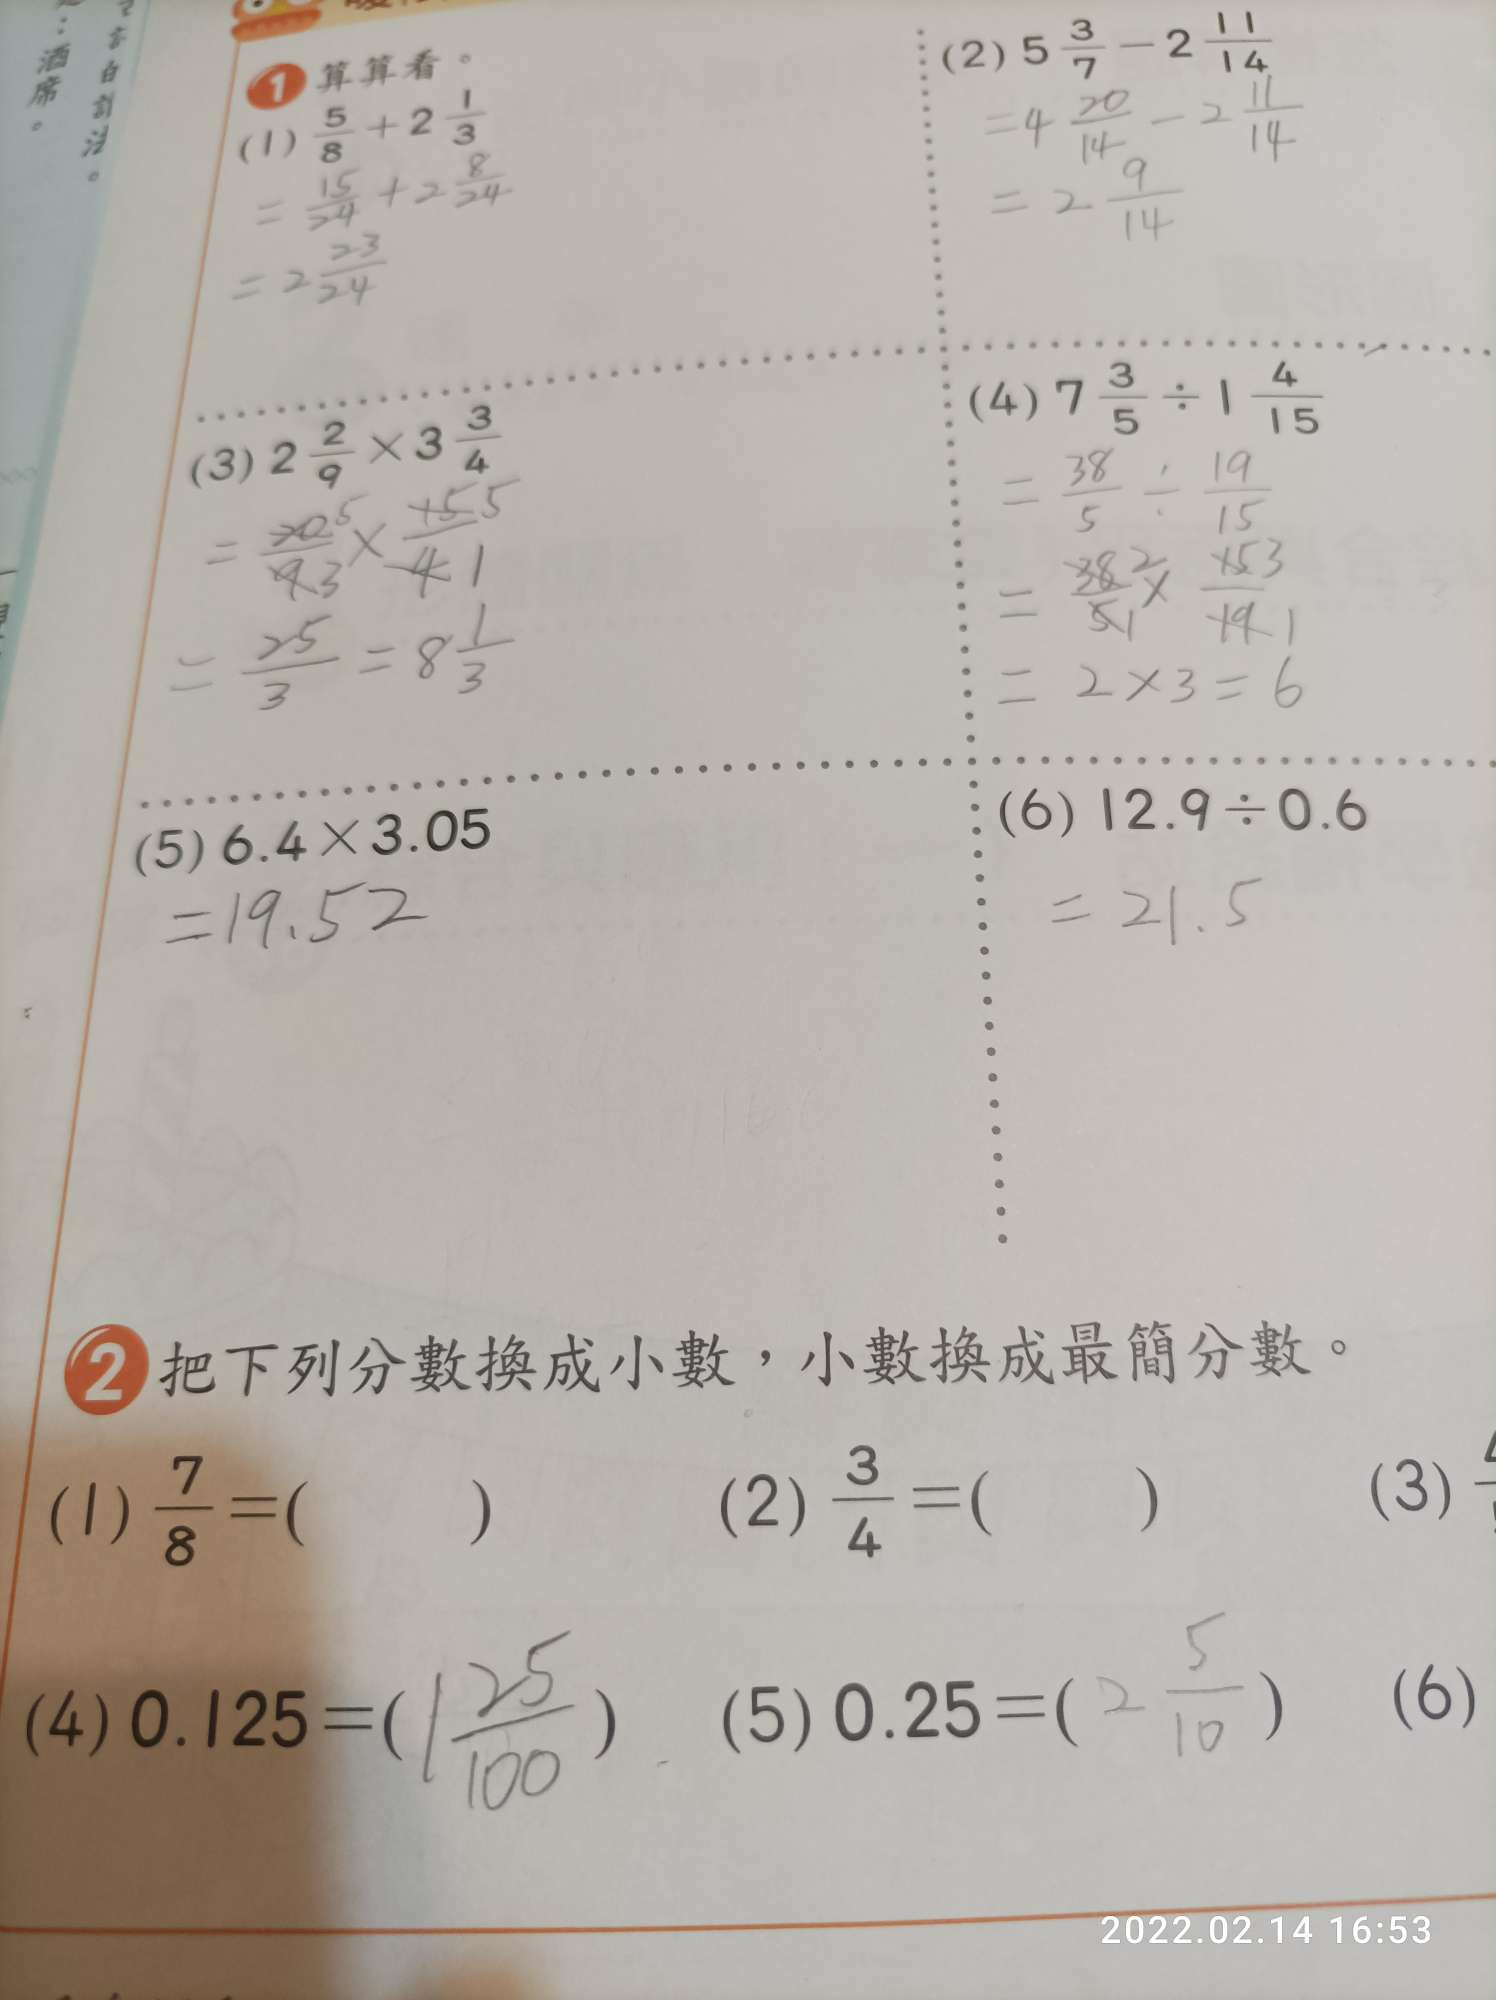 酒席。
❶ 算算看。
(1) 5/8 + 2 1/3
= 15/24 + 2 8/24
= 2 23/24
(2) 5 3/7 − 2 11/14
= 4 20/14 − 2 11/14
= 2 9/14
(3) 2 2/9 × 3 3/4
= 20 5/9 3 × 15 5/4 1
= 25/3 = 8 1/3
(4) 7 3/5 ÷ 1 4/15
= 38/5 ÷ 19/15
= 38 2/5 1 × 15 3/19 1
= 2 × 3 = 6
(5) 6.4 × 3.05
= 19.52
(6) 12.9 ÷ 0.6
= 21.5
❷ 把下列分數換成小數，小數換成最簡分數。
(1) 7/8 = (  ) (2) 3/4 = (  ) (3)
(4) 0.125 = ( 1 25/100 ) (5) 0.25 = ( 2 5/10 ) (6)
2022.02.14 16:53